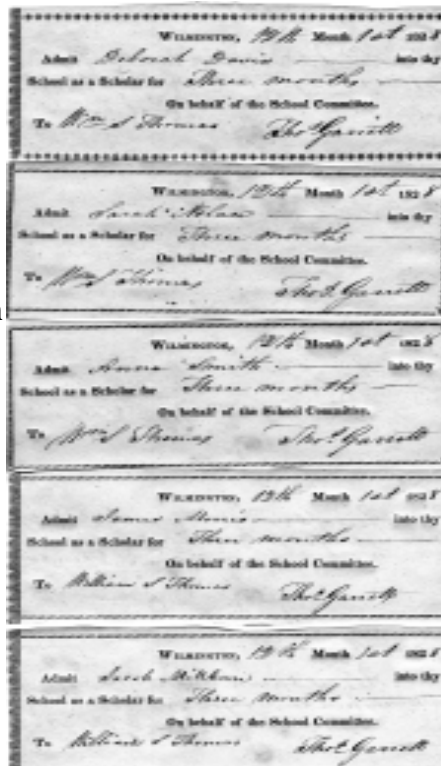 WILMINGTON, 12th Month 1st 1828
Admit Deborah Davis into thy
School as a Scholar for Three months
On behalf of the School Committee.
To Wm S Thomas Thos Garrett
WILMINGTON, 12th Month 1st 1828
Admit Sarah into thy
School as a Scholar for Three months
On behalf of the School Committee.
To Wm S Thomas Thos. Garrett
WILMINGTON, 12th Month 1st 1828
Admit Anna Smith into thy
School as a Scholar for Three months
On behalf of the School Committee.
To Wm S Thomas Thos. Garrett
WILMINGTON, 12th Month 1st 1828
Admit James into thy
School as a Scholar for Three months
On behalf of the School Committee.
To William S Thomas Thos. Garrett
WILMINGTON, 12th Month 1st 1828
Admit Sarah into thy
School as a Scholar for Three months
On behalf of the School Committee.
To William S Thomas Thos. Garrett